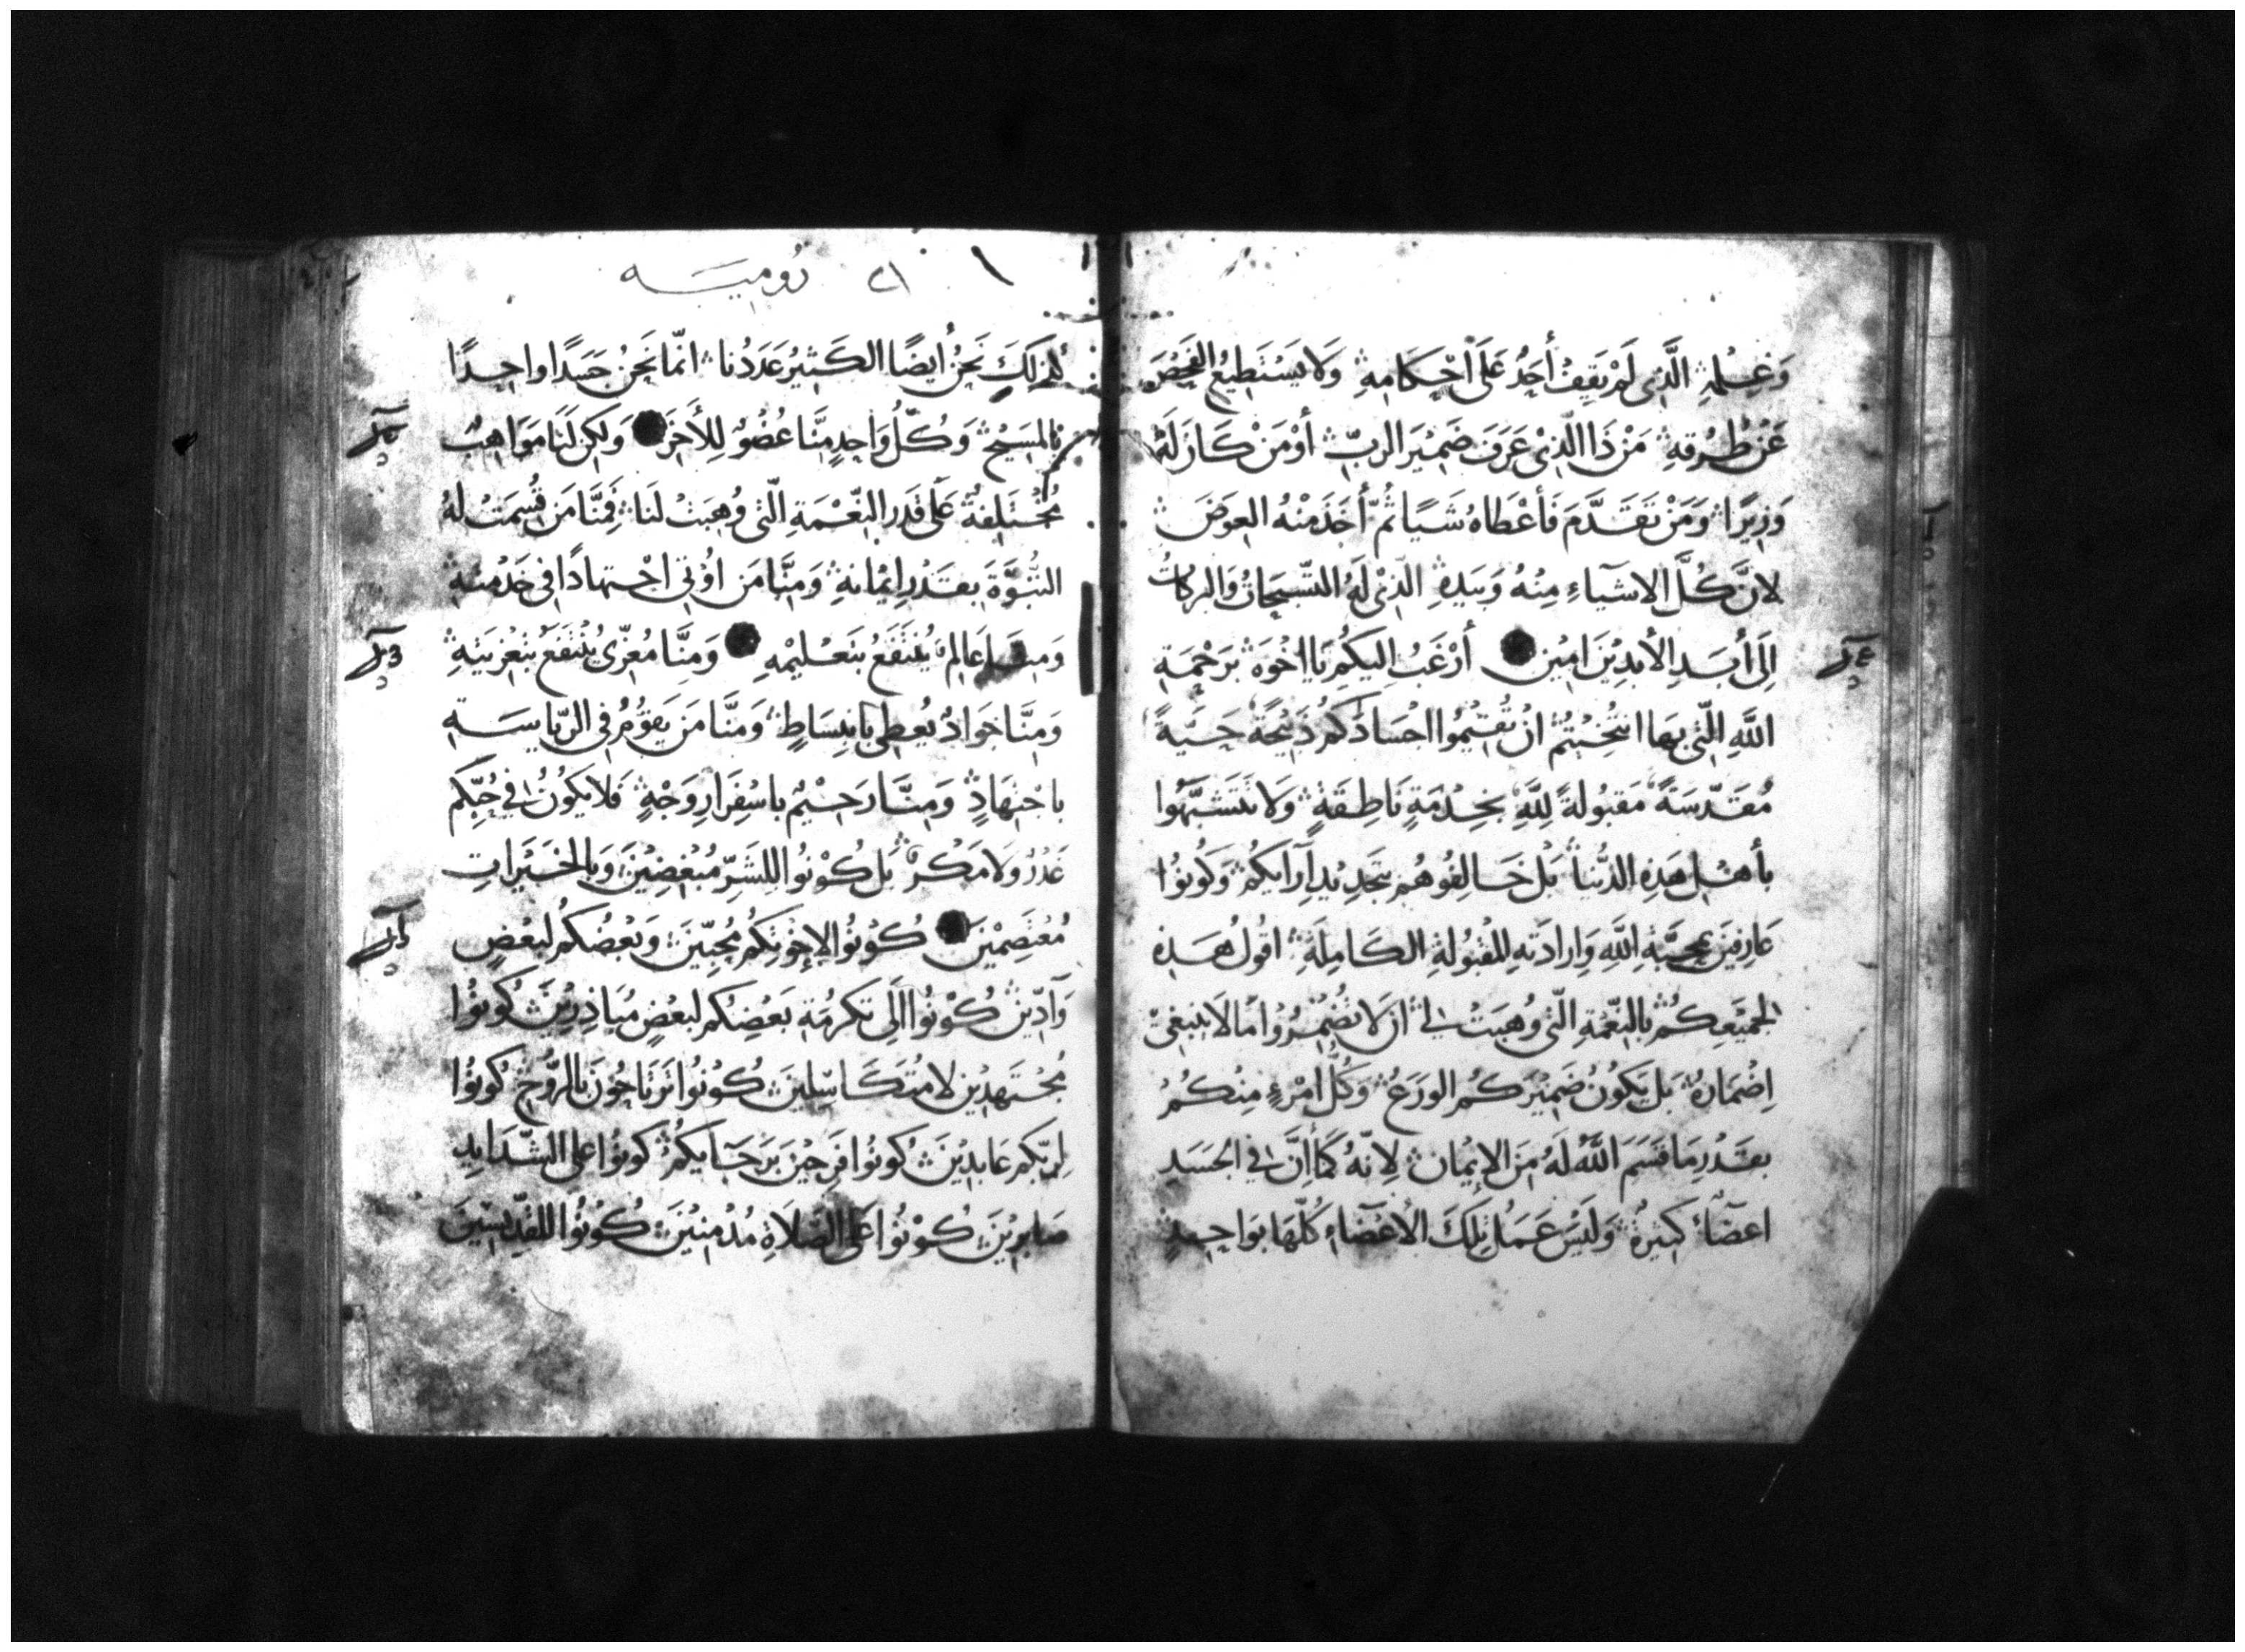 وَعِلْمِهِ الَّذِى لَمْ يَقِفْ أَحَدٌ عَلَى أَحْكَامِهِ وَلَا يَسْتَطِيعُ الفَحْصَ
عَنْ طُرُقِهِ مَنْ ذَا الَّذِىْ عَرَفَ ضَمِيْرَ الربِّ أوْ مَنْ كَانَ لَهُ
وَزِيرًا وَمَنْ تَقَدَّمَ فَأَعْطَاهُ شَيًا ثُمَّ أَخَذَ مِنْهُ العِوَضَ
لانَّ كُلَّ الاشيَآءِ مِنْهُ وَبِيَدِهِ الَّذِىْ لَهُ التَّسْبِحَاتُ وَالبركَاتُ
اِلَى أَبَدِ الأبدِيْنَ امِيْن أرْغَبُ اِلَيكُم يَا اخْوَة بَرَحْمَةِ
اللَّهِ الَّتِى بِهَا انتُخِبْتُم انْ تُقِيْمُوا اجْسَادَكُم ذَبِيْحَةً حَيَّةً
مُقَدَّسَةً مَقبُولَةً لِلَّهِ بخِدْمَةٍ نَاطِقَةٍ وَلَا تَتَشَبَّهُوا
بأهْلِ هَذِهِ الدُّنيَا بَلْ خَالِفُوهُم بتَجدِيْدِ آرَايكُم وَكُونُوْا
عَارِفِيَن بمحبَّةِ اللَّهِ وَارادَتهِ المَقْبُولَةِ الكَامِلَةِ اقُول هَذِهِ
لجَمِيْعِكُم بالنِّعْمَةِ الَّتِى وُهِبَتْ لِى أن لَا تُضْمِرُوْا مَا لَا يَنبَغِىْ
اِضْمَارُهُ بَل يَكُونُ ضَمِيْرَكُم الورَعُ وَكُلُّ امْرِءٍ مِنكُمْ
بقَدْرِ مَا قَسَمَ اللَّهُ لَهُ مِنَ الإيْمَانِ لِانَّهُ كَمَا إنَّ فى الجَسَدِ
اعضَآء كَثِيرَةٌ وَلَيْسَ عَمَلُ تِلكَ الأعْضَاءِ كُلّهَا بوَاحِدٍ
١ ٢١ رُومِيَه
كَذَلَكَ نَحَنُ أيضًا الكَثِيرُ عَدَدُنا انمّا نَحَنُ جَسَدًا واحِدًا
بِالمَسِيْحِ وَكُلُّ وَاحِدٍ مِنَّا عُضْوٌ لِلأَخَرَ وَلَكِن لَنَا مَوَاهِبُ
مُخْتَلِفَةٌ عَلَى قَدَرِ النِّعْمَةِ الَّتى وُهِبَتْ لَنَا فَمِنَّا مَن قُسِمَتْ لَهُ
النُّبُوَّةَ بقَدْرِ اِيْمَانهِ وَمِنَّا مَن اوْتى اجْتِهادًا فى خدْمَتهِ
عَالِم يُنتَفَعُ بتَعْلِيْمهِ وَمِنَّا مُعَزِّى يُنْتَفَعُ بتَعْزِيَتهِ
وَمِنَّا جَوَادٌ يُعطِى بانبِسَاطٍ وَمَنَّا مَن يَقُوْمُ فى الرِّيَاسَةِ
باجْتِهَادٍ وَمِنَّا رَحِيْمٌ باسْفِرَارِ وَجْهٍ فَلَا يَكُونُ فى حُبِّكُم
غَدْرٌ وَلَا مَكْرٌ بَل كُوْنُوا لِلشَرِّ مُبْغِضِيْنَ وَبالخَيْرَاتِ
مُعْتَصِمْيَن كُوْنُوا لاِخْوَتكُم مُحِبّيَن وَبَعْضُكُم لِبَعْضٍ
وَآدّينَ كُوْنُوا اِلَى تَكرُمَةِ بَعْضِكُم لبَعْضٍ مُبَاذِرِيْنَ كُونُوْا
مُجْتَهِدْين لا مُتَكَاسِلِينَ كُوْنُوا تَرتَاحُونَ بالرُّوْحِ كُونُوْا
لِرَبّكُم عَابِدِيْنَ كُونُوا فَرِحِيْنَ بَرَجَآيكُم كُونُوْا عَلى الشَّدَايِدِ
صَابِرِيْنَ كُوْنُوْا عَلَى الصَّلَاةِ مُدْمِنِيْنَ كُوْنُوْا لِلقِدِّيسِيَن